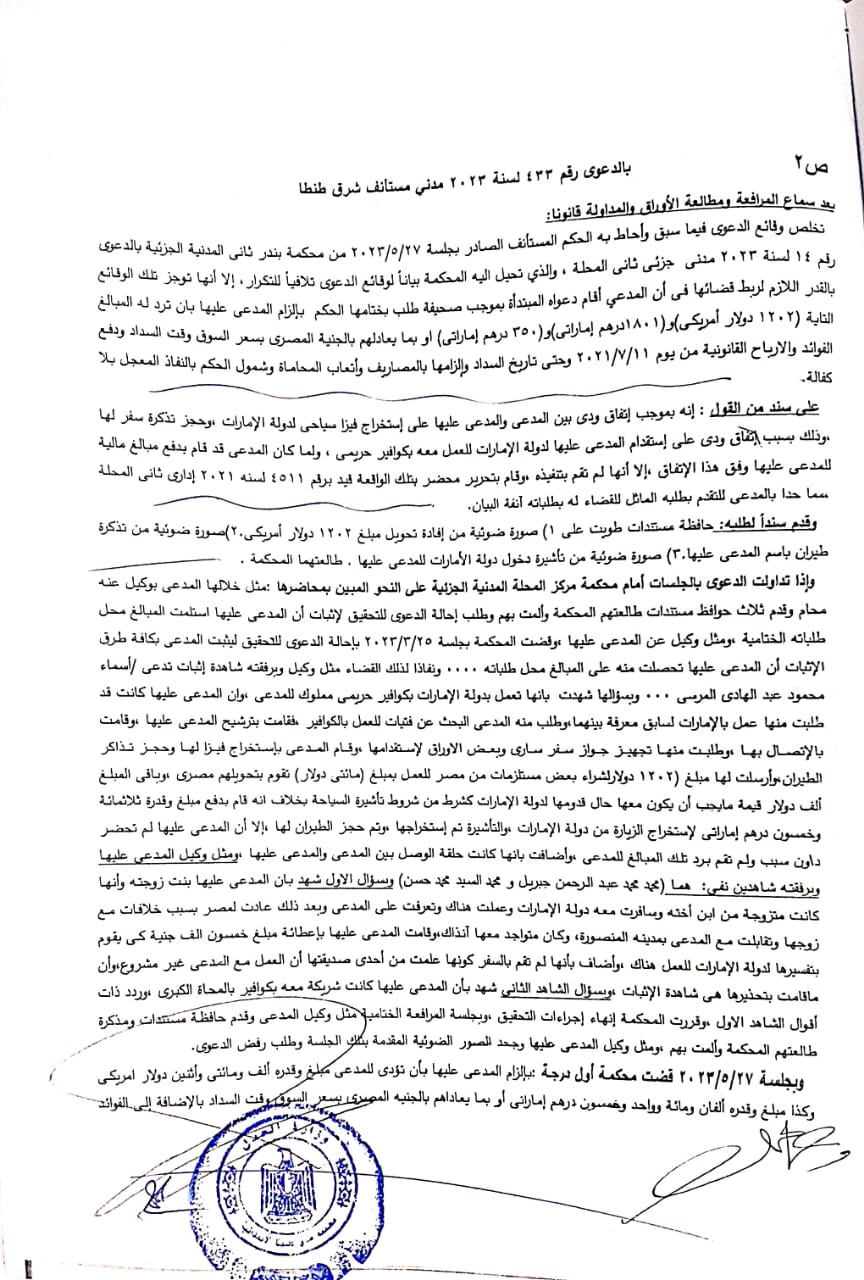 ص٢
بالدعوى رقم ٤٣٣ لسنة ٢٠٢٣ مدني مستانف شرق طنطا
بعد سماع المرافعة ومطالعة الأوراق والمداولة قانونا:
تخلص وقائع الدعوى فيما سبق وأحاط به الحكم المستأنف الصادر بجلسة ٢٠٢٣/٥/٢٧ من محكمة بندر ثانى المدنية الجزئية بالدعوى
رقم ١٤ لسنة ٢٠٢٣ مدنى جزئى ثانى المحلة ، والذي تحيل اليه المحكمة بياناً لوقائع الدعوى تلافياً للتكرار ، إلا أنها توجز تلك الوقائع
بالقدر اللازم لربط قضائها فى أن المدعي أقام دعواه المبتدأة بموجب صحيفة طلب بختامها الحكم بإلزام المدعى عليها بان ترد له المبالغ
التاية (١٢٠٢ دولار أمريكى)و(١٨٠١درهم إماراتى)و(٣٥٠ درهم إماراتى) او بما يعادلهم بالجنية المصرى بسعر السوق وقت السداد ودفع
الفوائد والارباح القانونية من يوم ٢٠٢١/٧/١١ وحتى تاريخ السداد وإلزامها بالمصاريف وأتعاب المحاماة وشمول الحكم بالنفاذ المعجل بلا
كفالة.
على سند من القول : إنه بموجب إتفاق ودى بين المدعى والمدعى عليها على إستخراج فيزا سياحى لدولة الإمارات ،وحجز تذكرة سفر لها
،وذلك بسبب إتفاق ودى على إستقدام المدعى عليها لدولة الإمارات للعمل معه بكوافير حريمى ، ولما كان المدعى قد قام بدفع مبالغ مالية
للمدعى عليها وفق هذا الإتفاق ،إلا أنها لم تقم بتنفيذه ،وقام بتحرير محضر بتلك الواقعة قيد برقم ٤٥١١ لسنه ٢٠٢١ إدارى ثانى المحلة
،مما حدا بالمدعى للتقدم بطلبه الماثل للقضاء له بطلباته آنفة البيان.
وقدم سنداً لطلبه: حافظة مستندات طويت على ١) صورة ضوئية من إفادة تحويل مبلغ ١٢٠٢ دولار أمريكى.٢)صورة ضوئية من تذكرة
طيران باسم المدعى عليها.٣) صورة ضوئية من تأشيرة دخول دولة الأمارات للمدعى عليها . طالعتهما المحكمة .
وإذا تداولت الدعوى بالجلسات أمام محكمة مركز المحلة المدنية الجزئية على النحو المبين بمحاضرها :مثل خلالها المدعى بوكيل عنه
محام وقدم ثلاث حوافظ مستندات طالعتهم المحكمة وألمت بهم وطلب إحالة الدعوى للتحقيق لإثبات أن المدعى عليها استلمت المبالغ محل
طلباته الختامية ،ومثل وكيل عن المدعى عليها ،وقضت المحكمة بجلسة ٢٠٢٣/٣/٢٥ بإحالة الدعوى للتحقيق ليثبت المدعى بكافة طرق
الإثبات أن المدعى عليها تحصلت منه على المبالغ محل طلباته ٠٠٠٠ ونفاذا لذلك القضاء مثل وكيل وبرفقته شاهدة إثبات تدعى /أسماء
محمود عبد الهادى المرسى ٠٠٠ وبمؤالها شهدت بانها تعمل بدولة الإمارات بكوافير حريمى مملوك للمدعى ،وان المدعى عليها كانت قد
طلبت منها عمل بالإمارات لسابق معرفة بينهما،وطلب منه المدعى البحث عن فتيات للعمل بالكوافير ،فقامت بترشيح المدعى عليها ،وقامت
بالإتصال بها ، وطلبت منها تجهيز جواز سفر سارى وبعض الاوراق لإستقدامها ،وقام المدعى بإستخراج فيزا لها وحجز تذاكر
الطيران،وأرسلت لها مبلغ (١٢٠٢ دولارلشراء بعض مستلزمات من مصر للعمل بمبلغ (مائتى دولار) تقوم بتحويلهم مصرى ،وباقى المبلغ
ألف دولار قيمة مايجب أن يكون معها حال قدومها لدولة الإمارات كشرط من شروط تأشيرة السياحة بخلاف انه قام بدفع مبلغ وقدرة ثلاثمائة
وخمسون درهم إماراتى لإستخراج الزيارة من دولة الإمارات ،والتأشيرة تم إستخراجها ،وتم حجز الطيران لها ،إلا أن المدعى عليها لم تحضر
داون سبب ولم تقم برد تلك المبالغ للمدعى ،وأضافت بانها كانت حلقة الوصل بين المدعى والمدعى عليها ،ومثل وكيل المدعى عليها
وبرفقته شاهدين نفى: هما (محمد محمد عبد الرحمن جبريل و محمد السيد محمد حسن) وبسؤال الاول شهد بان المدعى عليها بنت زوجته وأنها
كانت متزوجة من ابن أخته وسافرت معه دولة الإمارات وعملت هناك وتعرفت على المدعى وبعد ذلك عادت لمصر بسبب خلافات مع
زوجها وتقابلت مع المدعى بمدينه المنصورة، وكان متواجد معها آنذاك،وقامت المدعى عليها بإعطائة مبلغ خمسون الف جنية كى يقوم
بتفسيرها لدولة الإمارات للعمل هناك ،وأضاف بأنها لم تقم بالسفر كونها علمت من أحدى صديقتها أن العمل مع المدعى غير مشروع،وأن
ماقامت بتحذيرها هى شاهدة الإثبات ،وبسؤال الشاهد الثانى شهد بأن المدعى عليها كانت شريكة معه بكوافير بالمحاة الكبرى ،وردد ذات
أقوال الشاهد الاول ،وقررت المحكمة إنهاء إجراءات التحقيق ،وبجلسة المرافعة الختامية مثل وكيل المدعى وقدم حافظة مستندات ومذكرة
طالعتهم المحكمة وألمت بهم ،ومثل وكيل المدعى عليها وجحد الصور الضوئية المقدمة بتلك الجلسة وطلب رفض الدعوى.
وبجلسة ٢٠٢٣/٥/٢٧ قضت محكمة أول درجة :بإلزام المدعى عليها بأن تؤدى للمدعى مبلغ وقدره ألف ومائتى وأثنين دولار امريكى
وكذا مبلغ وقدره ألفان ومائة وواحد وخمسون درهم إماراتى أو بما يعاداهم بالجنيه المصرى بسعر السوق وقت السداد بالإضافة إلى الفوائد
وزارة العدل